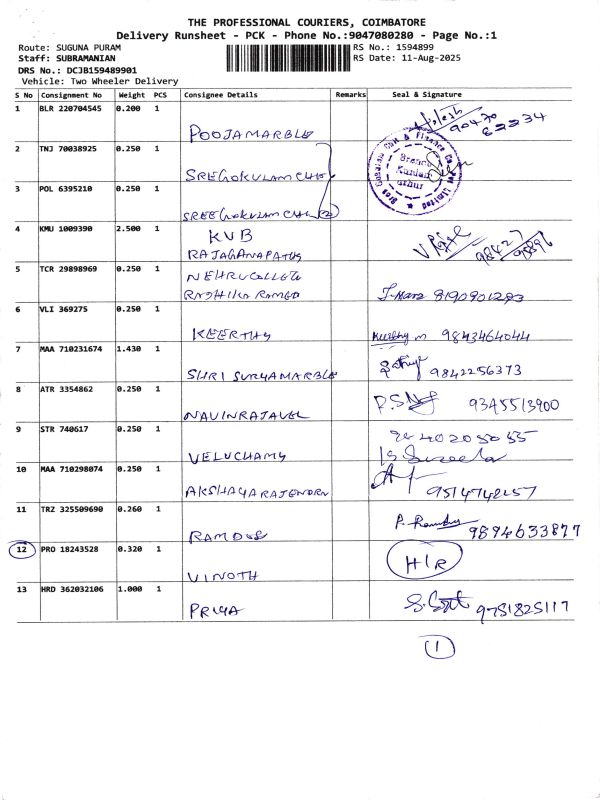 THE PROFESSIONAL COURIERS, COIMBATORE
Delivery Runsheet - PCK - Phone No.:9047080280 - Page No.:1
Route: SUGUNA PURAM
RS No.: 1594899
Staff: SUBRAMANIAN
RS Date: 11-Aug-2025
DRS No.: DCJB159489901
Vehicle: Two Wheeler Delivery
S No Consignment No Weight PCS Consignee Details Remarks Seal & Signature
1 BLR 220704545 0.200 1 POOJAMARBLE 90470 62234
2 TNJ 70038925 0.250 1 SREEGOKULAM CHE
3 POL 6395210 0.250 1 SREEGOKULAM CHE (2)
Branch
4 KMU 1009390 2.500 1 KVB
RAJAGANAPATHY
98427
5 TCR 29898969 0.250 1 NEHRUCOLLEGE
8190901293
6 VLI 369275 0.250 1 KEERTHY Keerthy m 9843464044
7 MAA 710231674 1.430 1 SHRI SURYAMARBLE 9842256373
8 ATR 3354862 0.250 1 NAVINRAJAVEL 9345513900
9 STR 740617 0.250 1 VELUCHAMY
10 MAA 710298074 0.250 1 AKSHAYARAJENDRN 9514742157
11 TRZ 325509690 0.260 1 RAMDOS 9894633877
12 PRO 18243528 0.320 1 VINOTH H/R
13 HRD 362032106 1.000 1 PRIYA 9751825117
1